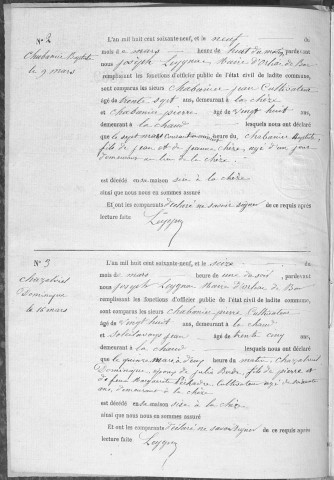 N° 2
Chabanier Baptiste
le 9 mars
L'an mil huit cent soixante-neuf, et le neuf du
mois de mars heure de huit du matin, pardevant
nous Joseph Leygnac Maire d'Orliac de Bar
remplissant les fonctions d'officier public de l'état civil de ladite commune,
sont comparus les sieurs Chabanier jean Cultivateur
âgé de trente sept ans, demeurant à la chèze
et Chabanier pierre âgé de vingt huit ans,
demeurant à la chaud lesquels nous ont déclaré
que le sept mars Chabanier Baptiste,
fils de jean et de jeanne chèze, agé d'un jour
demeurant au lieu de la chèze
est décédé en sa maison sise à la chèze
ainsi que nous nous en sommes assuré
Et ont les comparants déclaré ne savoir signer de ce requis après
lecture faite
N° 3
Dominique
le 16 mars
L'an mil huit cent soixante-neuf, et le seize du
mois de mars heure de une du soir, pardevant
nous Joseph Leygnac Maire d'Orliac de Bar
remplissant les fonctions d'officier public de l'état civil de ladite commune,
sont comparus les sieurs Chabanier pierre Cultivateur
âgé de vingt huit ans, demeurant à la chaud
et jean âgé de trente cinq ans,
demeurant à la chaud lesquels nous ont déclaré
que le quinze mars à cinq heures du matin,
Dominique, époux de julie fils de pierre et
de feue Marguerite cultivateur agé de soixante
ans, demeurant à la chèze
est décédé en sa maison sise à la chèze
ainsi que nous nous en sommes assuré
Et ont les comparants déclaré ne savoir signer de ce requis après
lecture faite